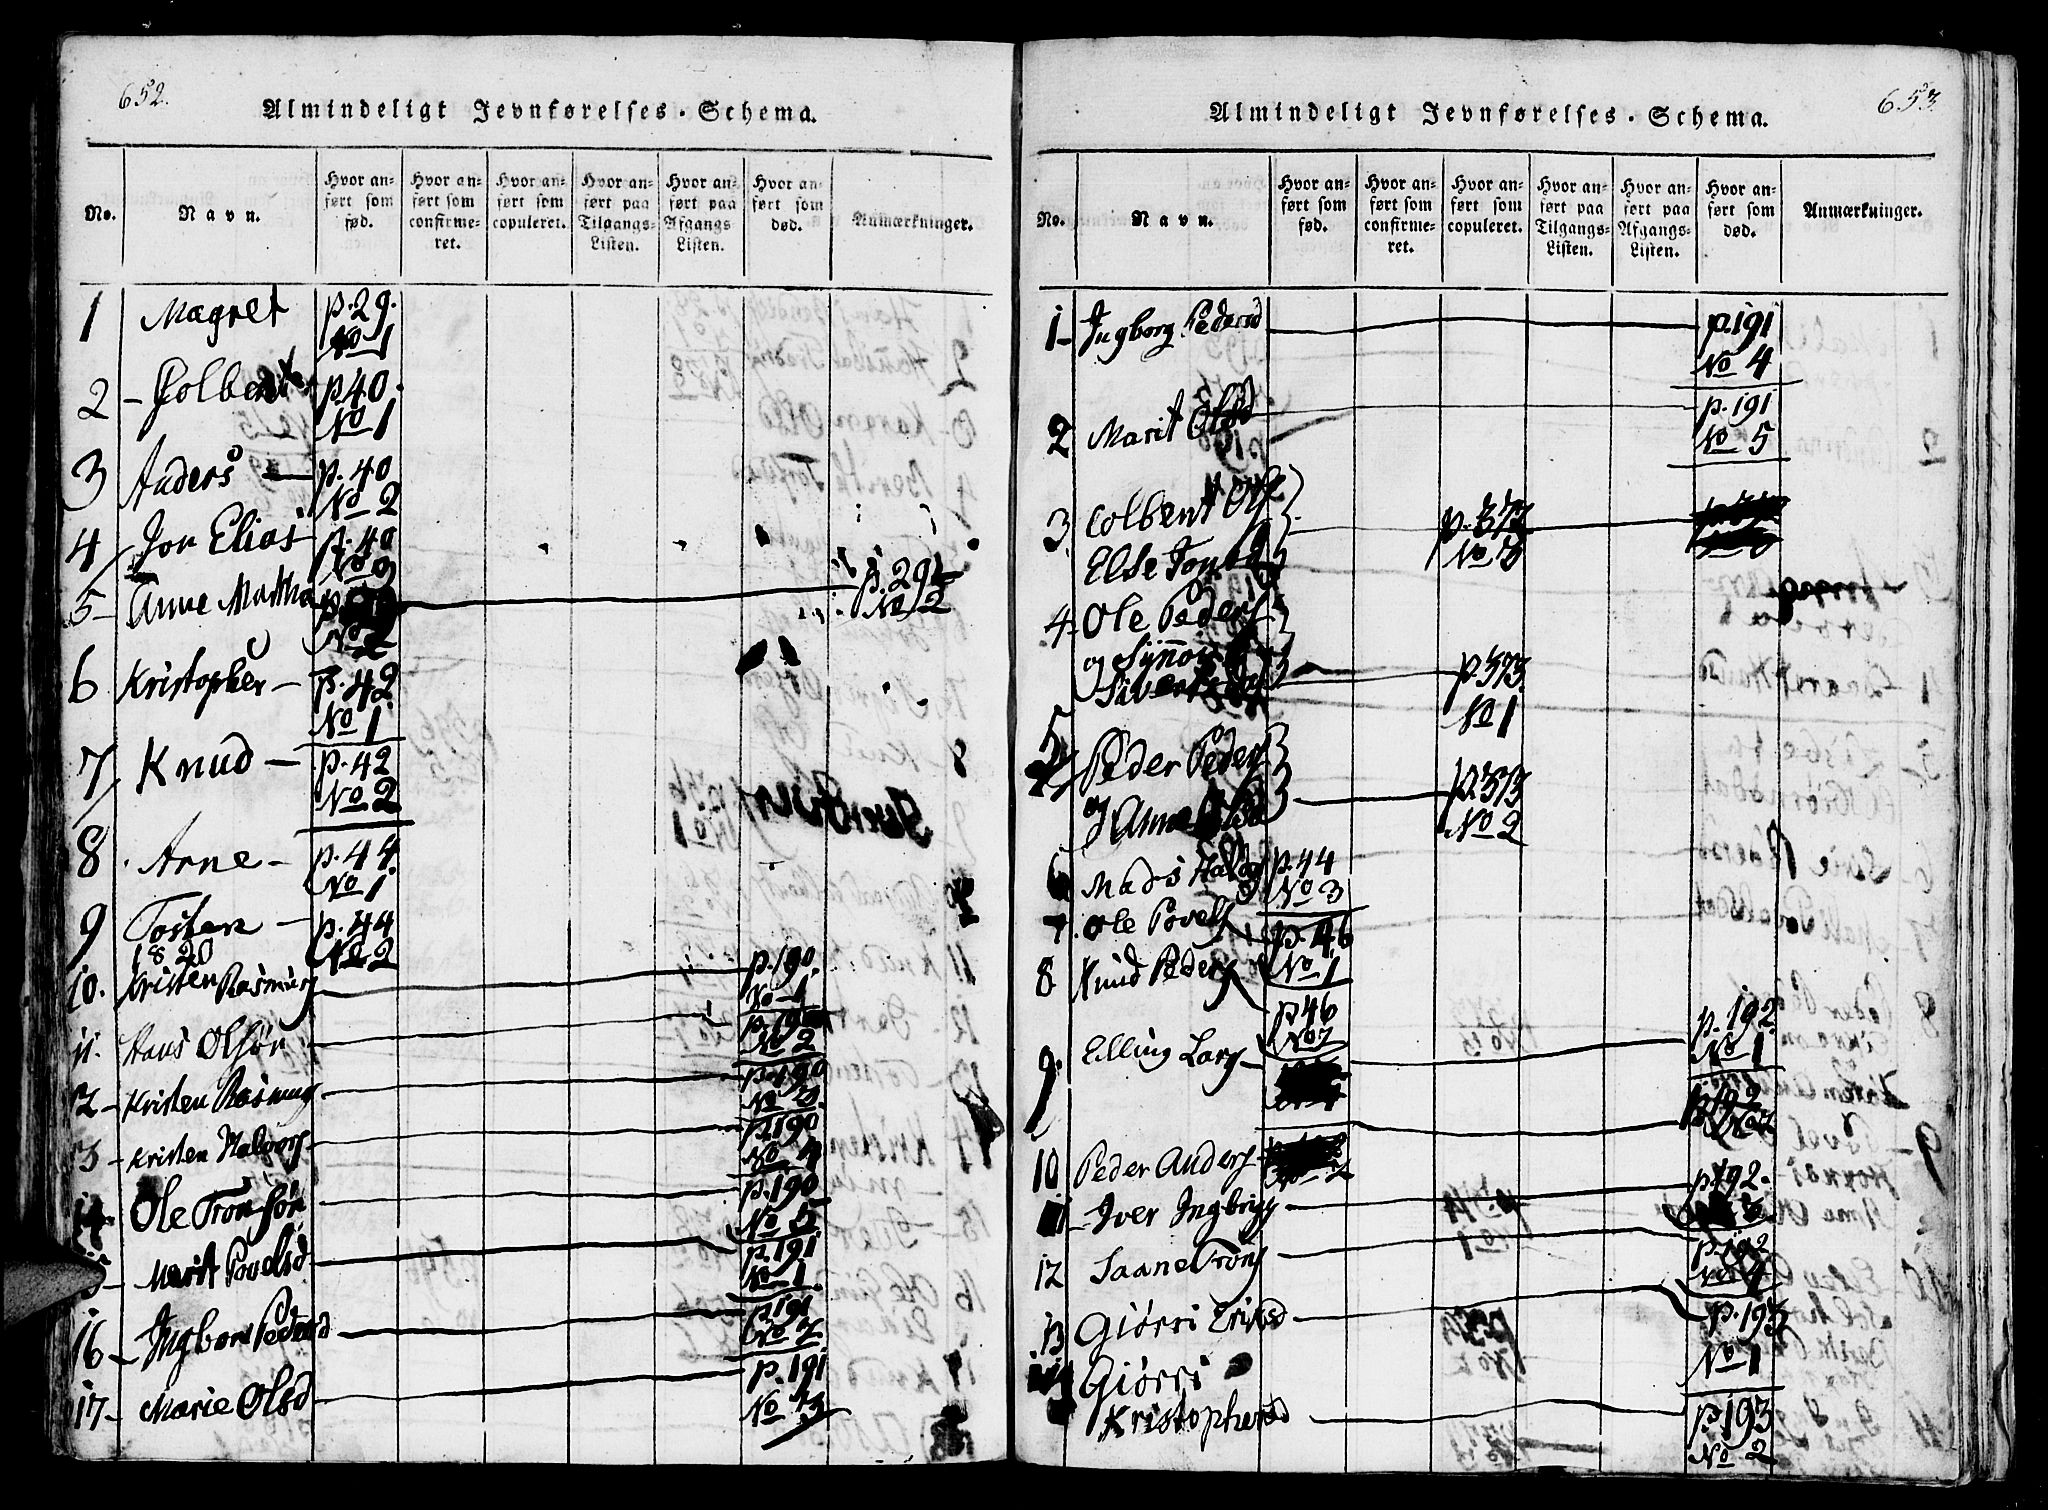 652.
Almindeligt Jevnførelses-Schema.
No.
Navn.
Hvor an-
ført som
fød.
Hvor an-
ført som
confirme-
ret.
Hvor an-
ført som
copuleret.
Hvor an-
ført paa
Tilgangs-
Listen.
Hvor an-
ført paa
Afgangs
Listen.
Hvor an-
ført som
død.
Anmærkninger.
1 Magret p. 29.
No 1
2 - Colbent p. 40.
No 1
3 Anders p. 40
No 2
4 Jon Elias p. 40
No 3
5 - Anne Martha p. 294
No 2 No 2
6 Kristopher - p. 42
No 1
7 Knud - p. 42
No 2
8 Arne - p. 44.
No 1
9 Tosten - p. 44
1820 No 2
10. Kristen Rasmus p. 190.
No 1
11. Hans Olsøn p. 190
No 2
12 - Kristen Rasmus p. 190
No 3.
13 - Kristen Halvors p. 190
No 4
14. Ole Tronsøn p. 190
No 5
15 - Marit Povelsd p. 191
No 1.
16 - Ingborr Pedersd p. 191
No 2
17 - Marie Olsd p. 191
No 3
653
Almindeligt Jevnførelses-Schema.
No.
Navn.
Hvor an-
ført som
fød.
Hvor an-
ført som
confirme-
ret.
Hvor an-
ført som
copuleret.
Hvor an-
ført paa
Tilgangs-
Listen.
Hvor an-
ført paa
Afgangs-
Listen.
Hvor an-
ført som
død.
Anmærkninger.
1 - Ingborg Pedersd p. 191
No 4
2 Marit Olsd p. 191
No 5
3. Colbent Ols p. 372
Else Jonsd No 3
4. Ole Peders
og Synnov p. 373.
Sivertsd No 1
5 Peder Peders
og Anne Olsd p. 373
No 2
6 Mads Halvors p. 44
No 3
7. Ole Povels p. 46
No 1
8 Knud Peders p. 46
No 2
9. Elling Lars p. 192
No 1
10 Peder Anders p. 192
No 2
11 - Iver Ingbrigs - p. 192.
12 Saane Trons p. 192
No 4
13 Giørri Eriksd p. 193
No 1
14 Giørri
Kristophersd p. 193
No 2